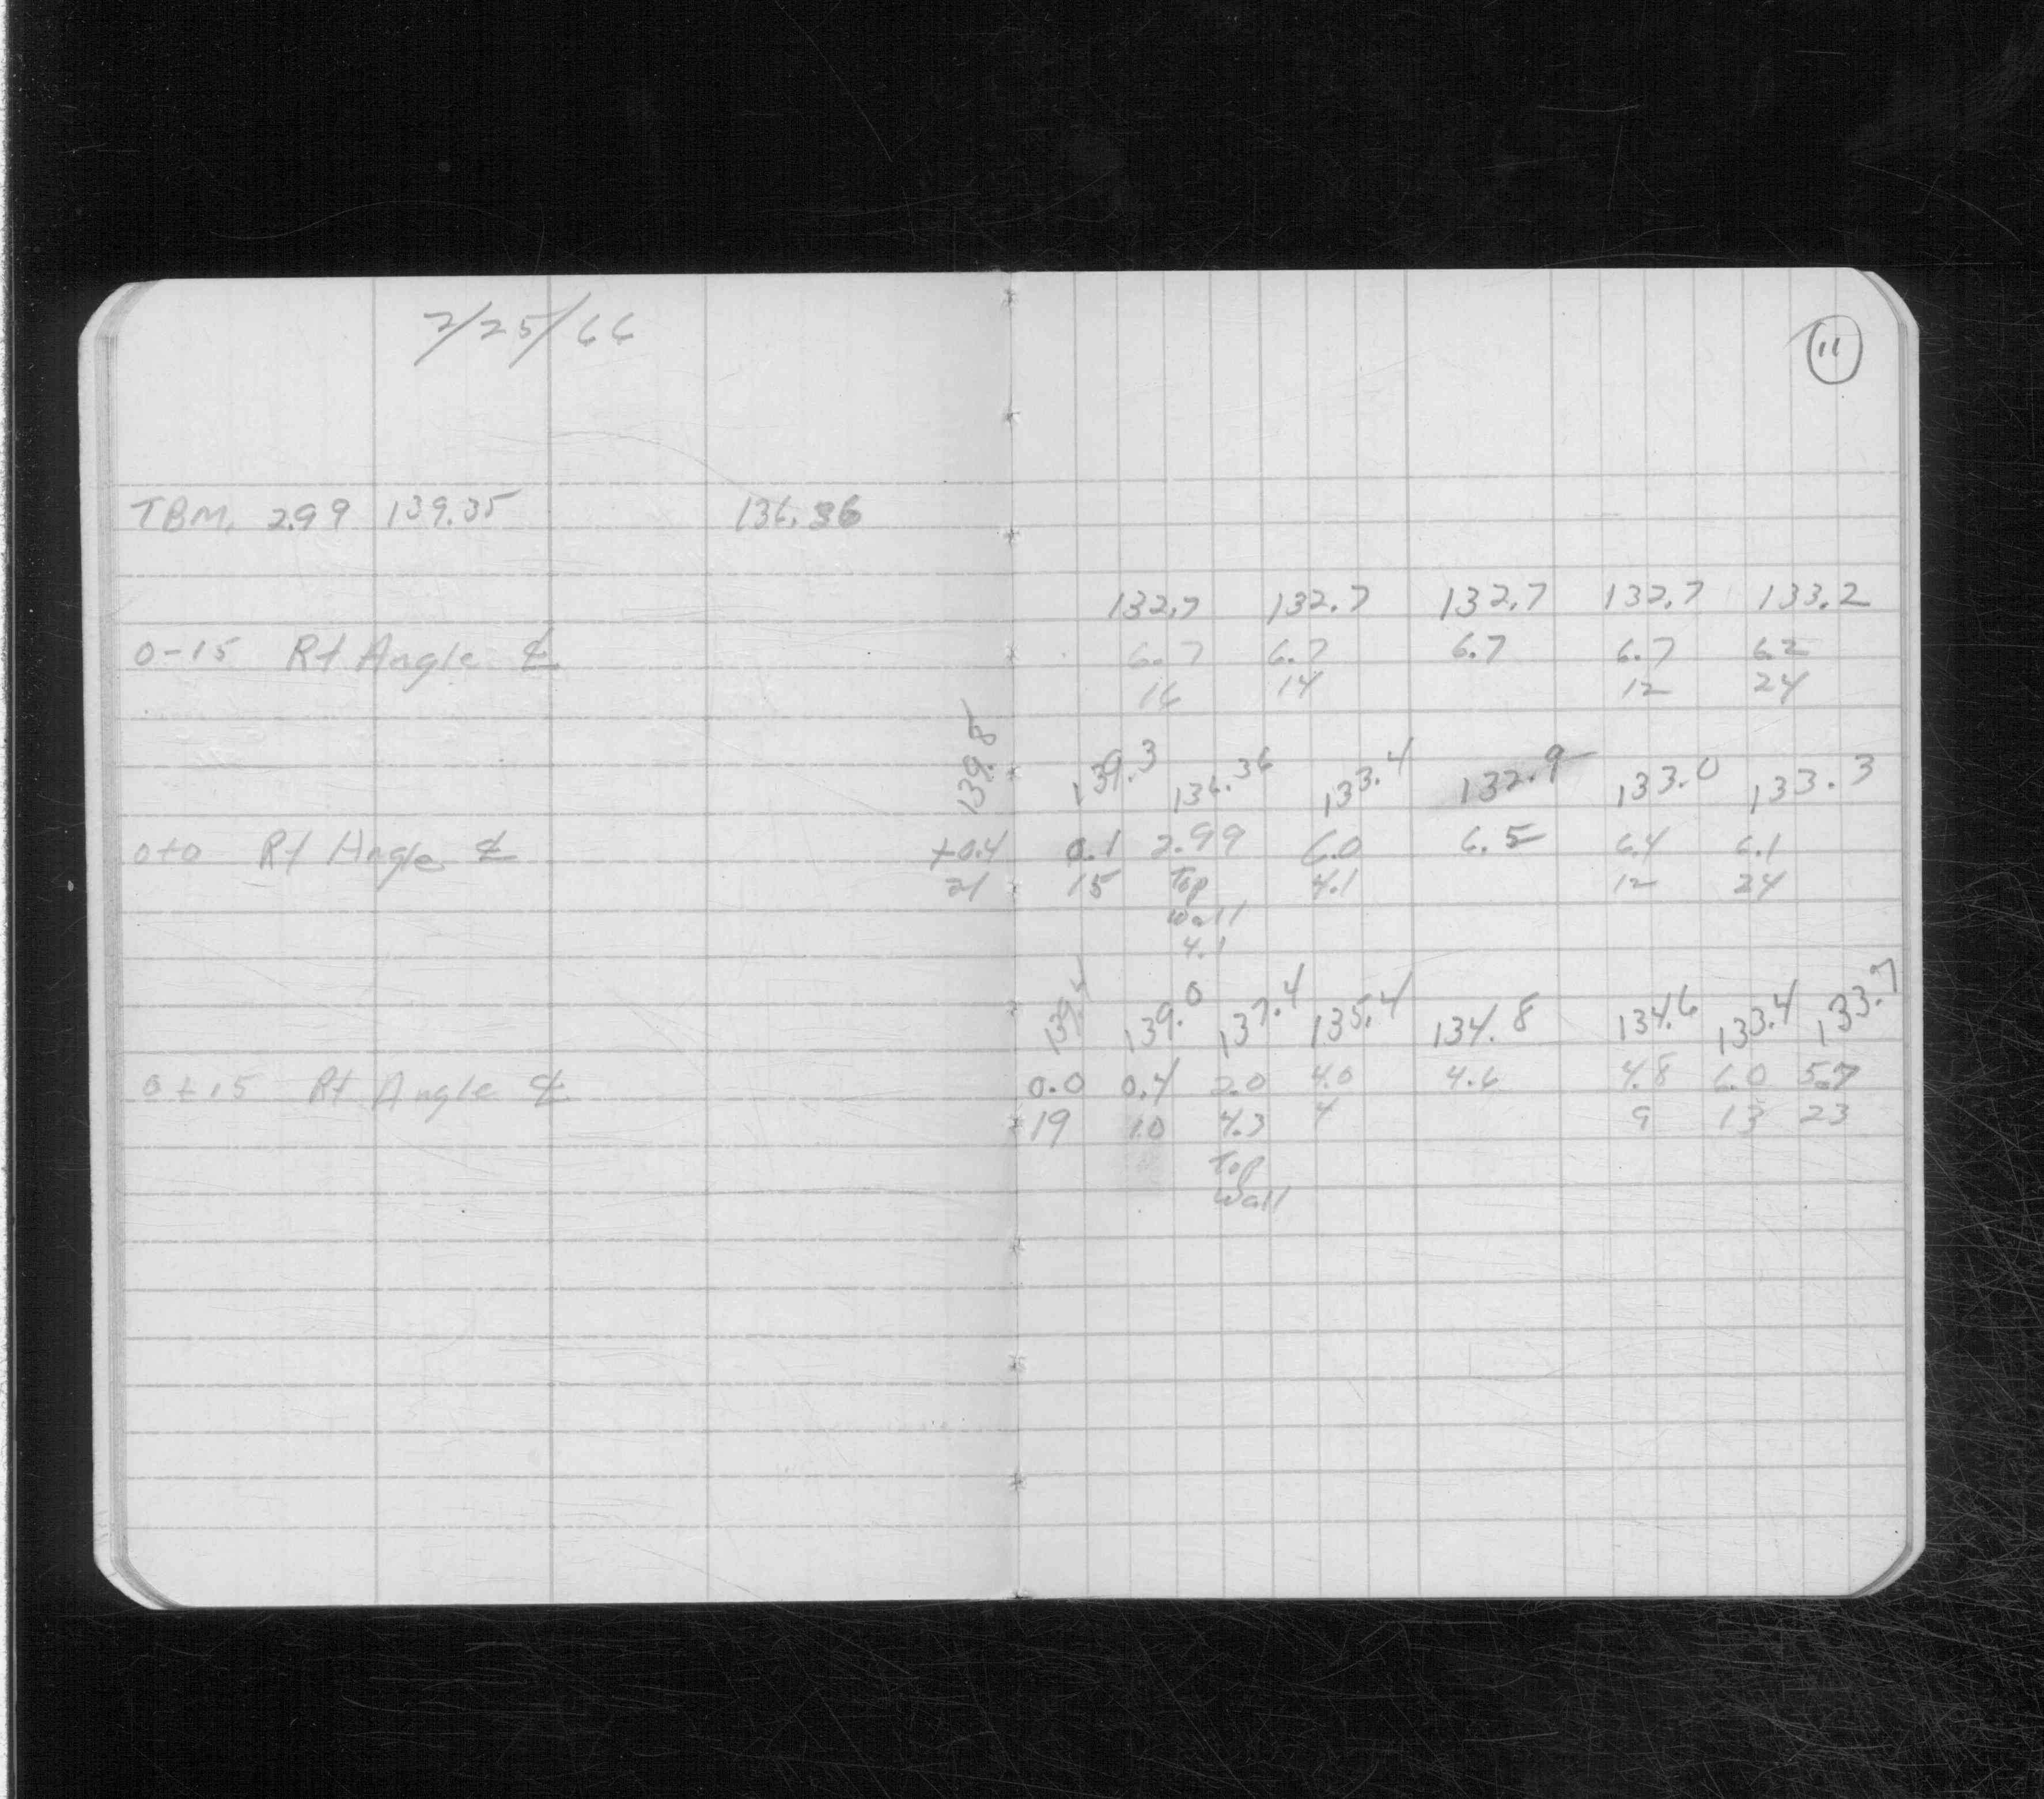 2/25/66
11
TBM. 2.99 139.35 136.36
132.7 132.7 132.7 132.7 133.2
0-15 Rt Angle ℄ 6.7 6.7 6.7 6.7 6.2
16 14 12 24
139.8 139.3 136.36 133.4 132.9 133.0 133.3
0+0 Rt Angle ℄ +0.4 0.1 2.99 6.0 6.5 6.4 6.1
21 15 Top 4.1 12 24
Wall
4.1
139.4 139.0 137.4 135.4 134.8 134.6 133.4 133.7
0+15 Rt Angle ℄ 0.0 0.4 2.0 4.0 4.6 4.8 6.0 5.7
19 10 4.3 4 9 13 23
Top
Wall